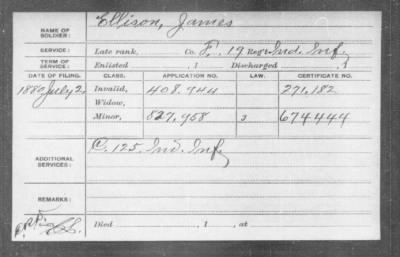 NAME OF SOLDIER: Ellison, James
SERVICE: Late rank, Co. F, 19 Reg't Ind. Inf.
TERM OF SERVICE: Enlisted , 1 Discharged , 1
DATE OF FILING. CLASS. APPLICATION NO. LAW. CERTIFICATE NO.
1880 July 2 Invalid, 408.944 271,182
Widow,
Minor, 827,958 3 674444
ADDITIONAL SERVICES: C. 125. Ind. Inf.
REMARKS:
Died , 1 , at